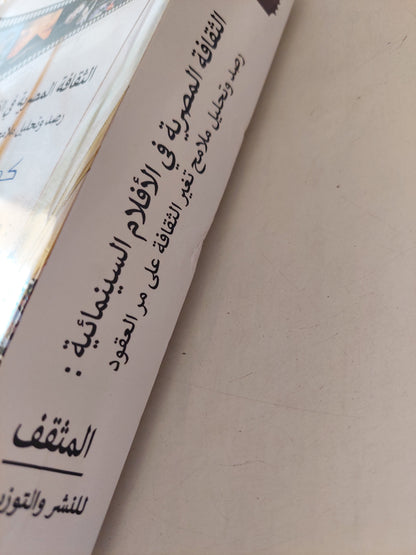 الثقافة المصرية في الأفلام السينمائية :
رصد وتحليل ملامح تغير الثقافة على مر العقود
المثقف
للنشر والتوزي
الثقافة المصرية في الأ
رصد وتحليل ملامح